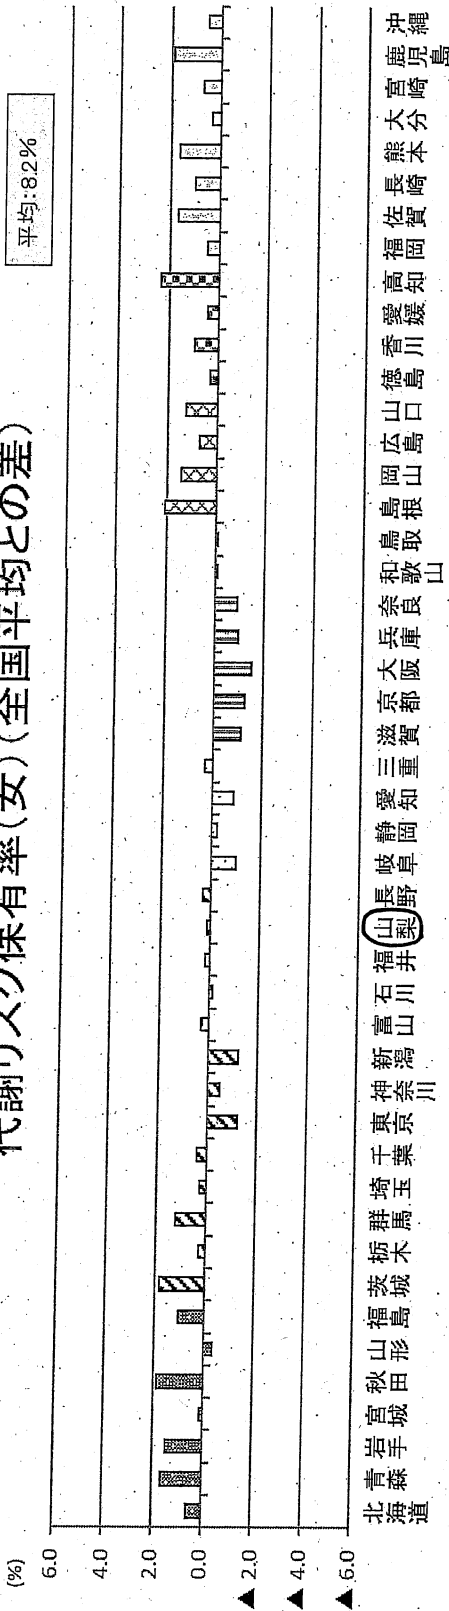 代謝リスク保有率(女)(全国平均との差)
平均:8.2%
(%)
6.0
4.0
2.0
0.0
▲ 2.0
▲ 4.0
▲ 6.0
北海道
青森
岩手
宮城
秋田
山形
福島
茨城
栃木
群馬
埼玉
千葉
東京
神奈川
新潟
富山
石川
福井
山梨
長野
岐阜
静岡
愛知
三重
滋賀
京都
大阪
兵庫
奈良
和歌山
鳥取
島根
岡山
広島
山口
徳島
香川
愛媛
高知
福岡
佐賀
長崎
熊本
大分
宮崎
鹿児島
沖縄